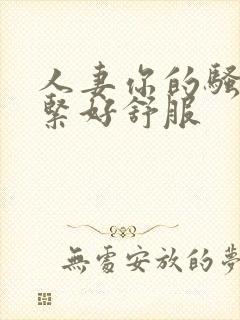 人妻你的騷
緊好舒服
無處安放的夢